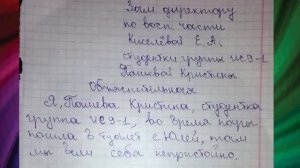 Зам. директору
по восп. части
Киселёвой Е.А,
студентки группы ЧС9-1
Пашевой Кристины
Объяснительная
Я, Пашева Кристина, студентка
группа ЧС9-1, во время пары
пошла в туалет с Юлей, там
мы вели себя непристойно.